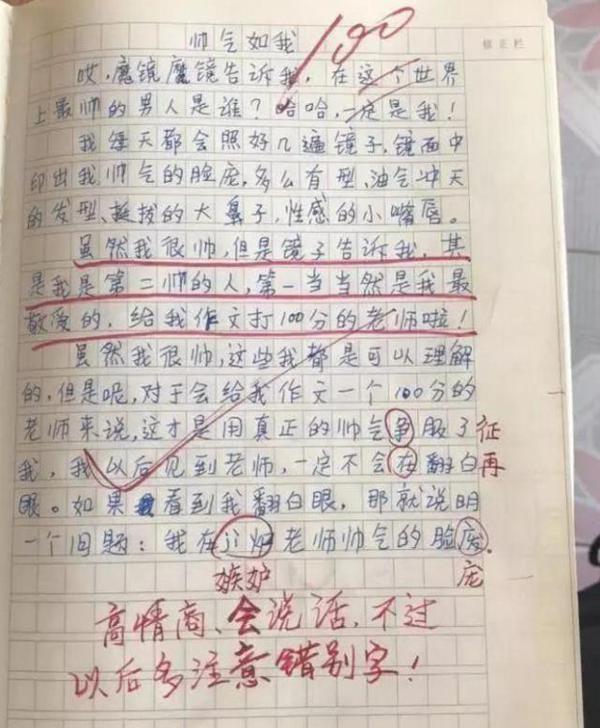 帅气如我
100
修正栏
哎,魔镜魔镜告诉我,在这个世界
上最帅的男人是谁?哈哈,一定是我!
我每天都会照好几遍镜子,镜面中
印出我帅气的脸庞,多么有型、油气冲天
的发型、挺拔的大鼻子,性感的小嘴唇。
虽然我很帅,但是镜子告诉我,其
是我是第二帅的人,第一当当然是我最
敬爱的,给我作文打100分的老师啦!
虽然我很帅,这些我都是可以理解
的,但是呢,对于会给我作文一个100分的
老师来说,这才是用真正的帅气争服了征
我,我以后见到老师,一定不会在翻白再
眼。如果看到我翻白眼,那就说明
一个回题:我在 老师帅气的脸
嫉妒 庞
高情商、会说话,不过
以后多注意错别字!